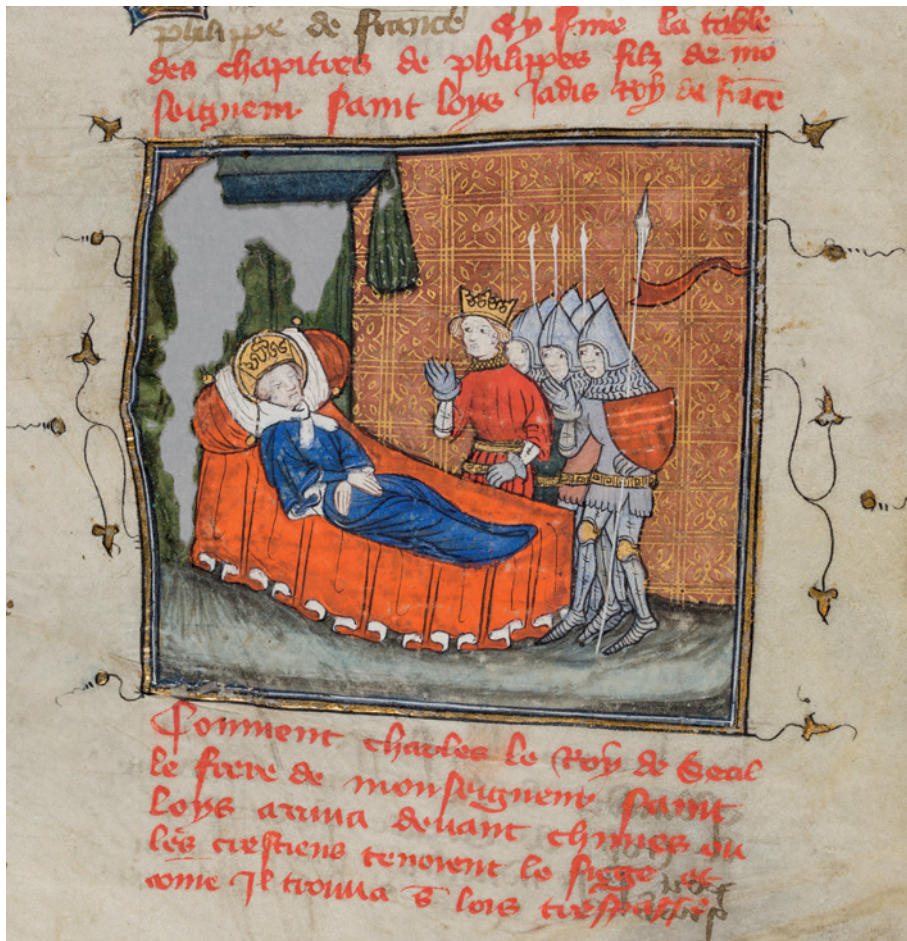 philippe de france Cy fine la table
des chapitres de philippes filz de mo
seigneur saint loys Jadis Roy de frāce
Comment charles le Roy de Secil
le frere de monseigneur saint
loys arriua deuant thunes ou
les crestiens tenoient le siege et
cōme Jl trouua s̄ lois trespasse